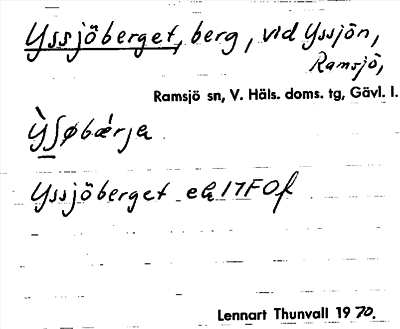 Yssjöberget, berg, vid Yssjön,
Ramsjö,
Ramsjö sn, V. Häls. doms. tg, Gävl. l.
Ỳʃøbǽrja
Yssjöberget ek 17F0f
Lennart Thunvall 1970.